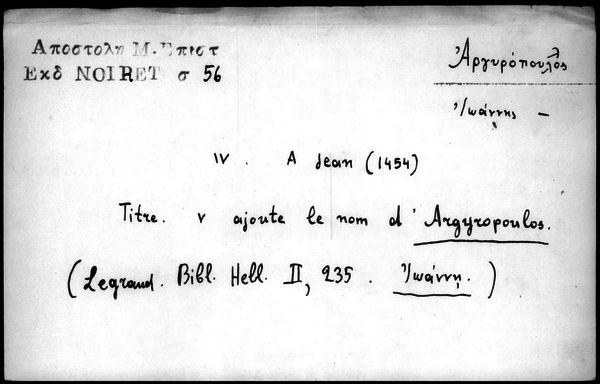 Αποστολη Μ. Επιστ
Εκδ NOIRET σ 56
Ἀργυρόπουλος
Ἰωάννης —
IV. A Jean (1454)
Titre. v ajoute le nom d'Argyropoulos.
(Legrand. Bibl. Hell. II, 235. Ἰωάννῃ.)